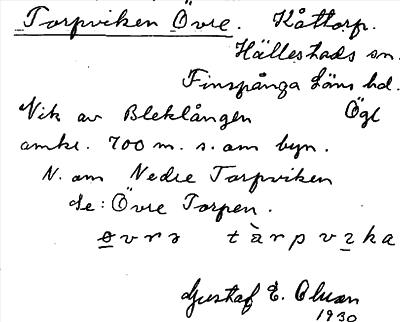 Torpviken Övre. Kåttorp.
Hällestads sn.
Finspånga läns hd.
Vik av Bleklången Ögl
omkr. 700 m. s. om byn.
N. om Nedre Torpviken
Se: Övre Torpen.
øvrə tàrpvika
Gustaf E. Olsson
1930